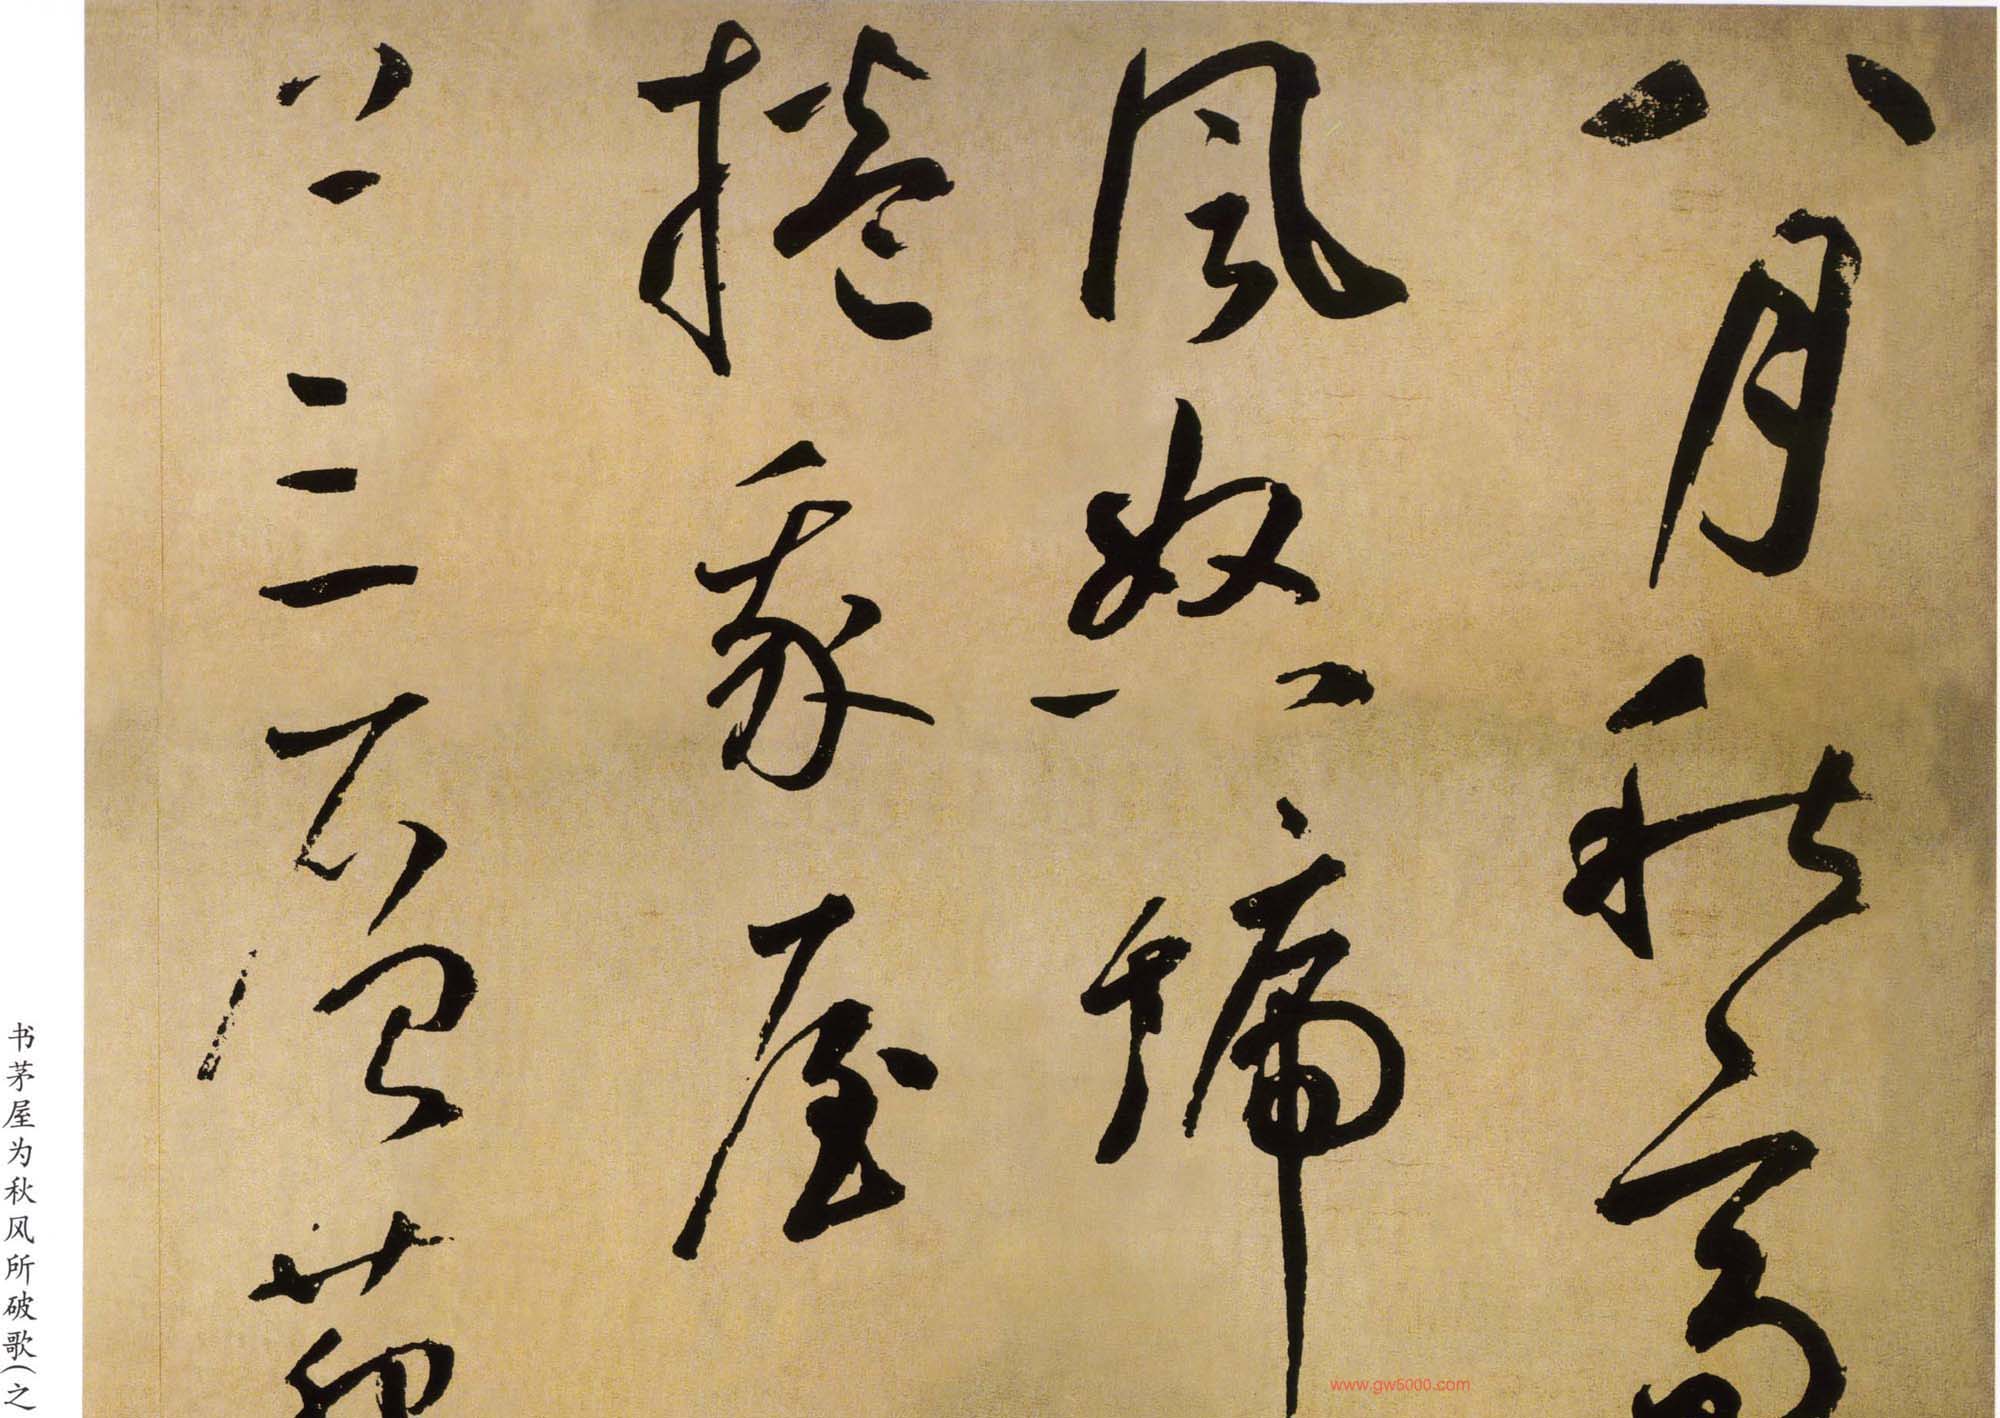 八月秋高
風怒號
捲我屋
上三層茆
书茅屋为秋风所破歌(之
www.gw5000.com